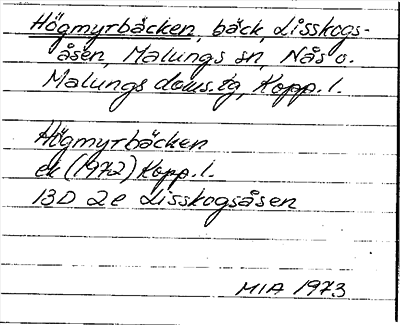 Högmyrbäcken, bäck Lisskogs-
åsen, Malungs sn, Nås o.
Malungs doms.tg, Kopp. l.
Högmyrbäcken
ek (1972) Kopp. l.
13D 2e Lisskogsåsen
MIA 1973